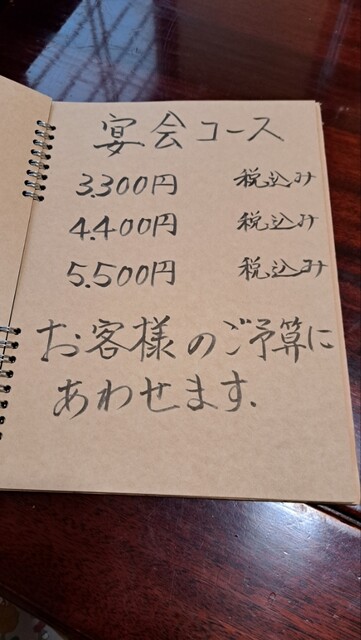 宴会コース
3.300円 税込み
4.400円 税込み
5.500円 税込み
お客様のご予算に
あわせます.